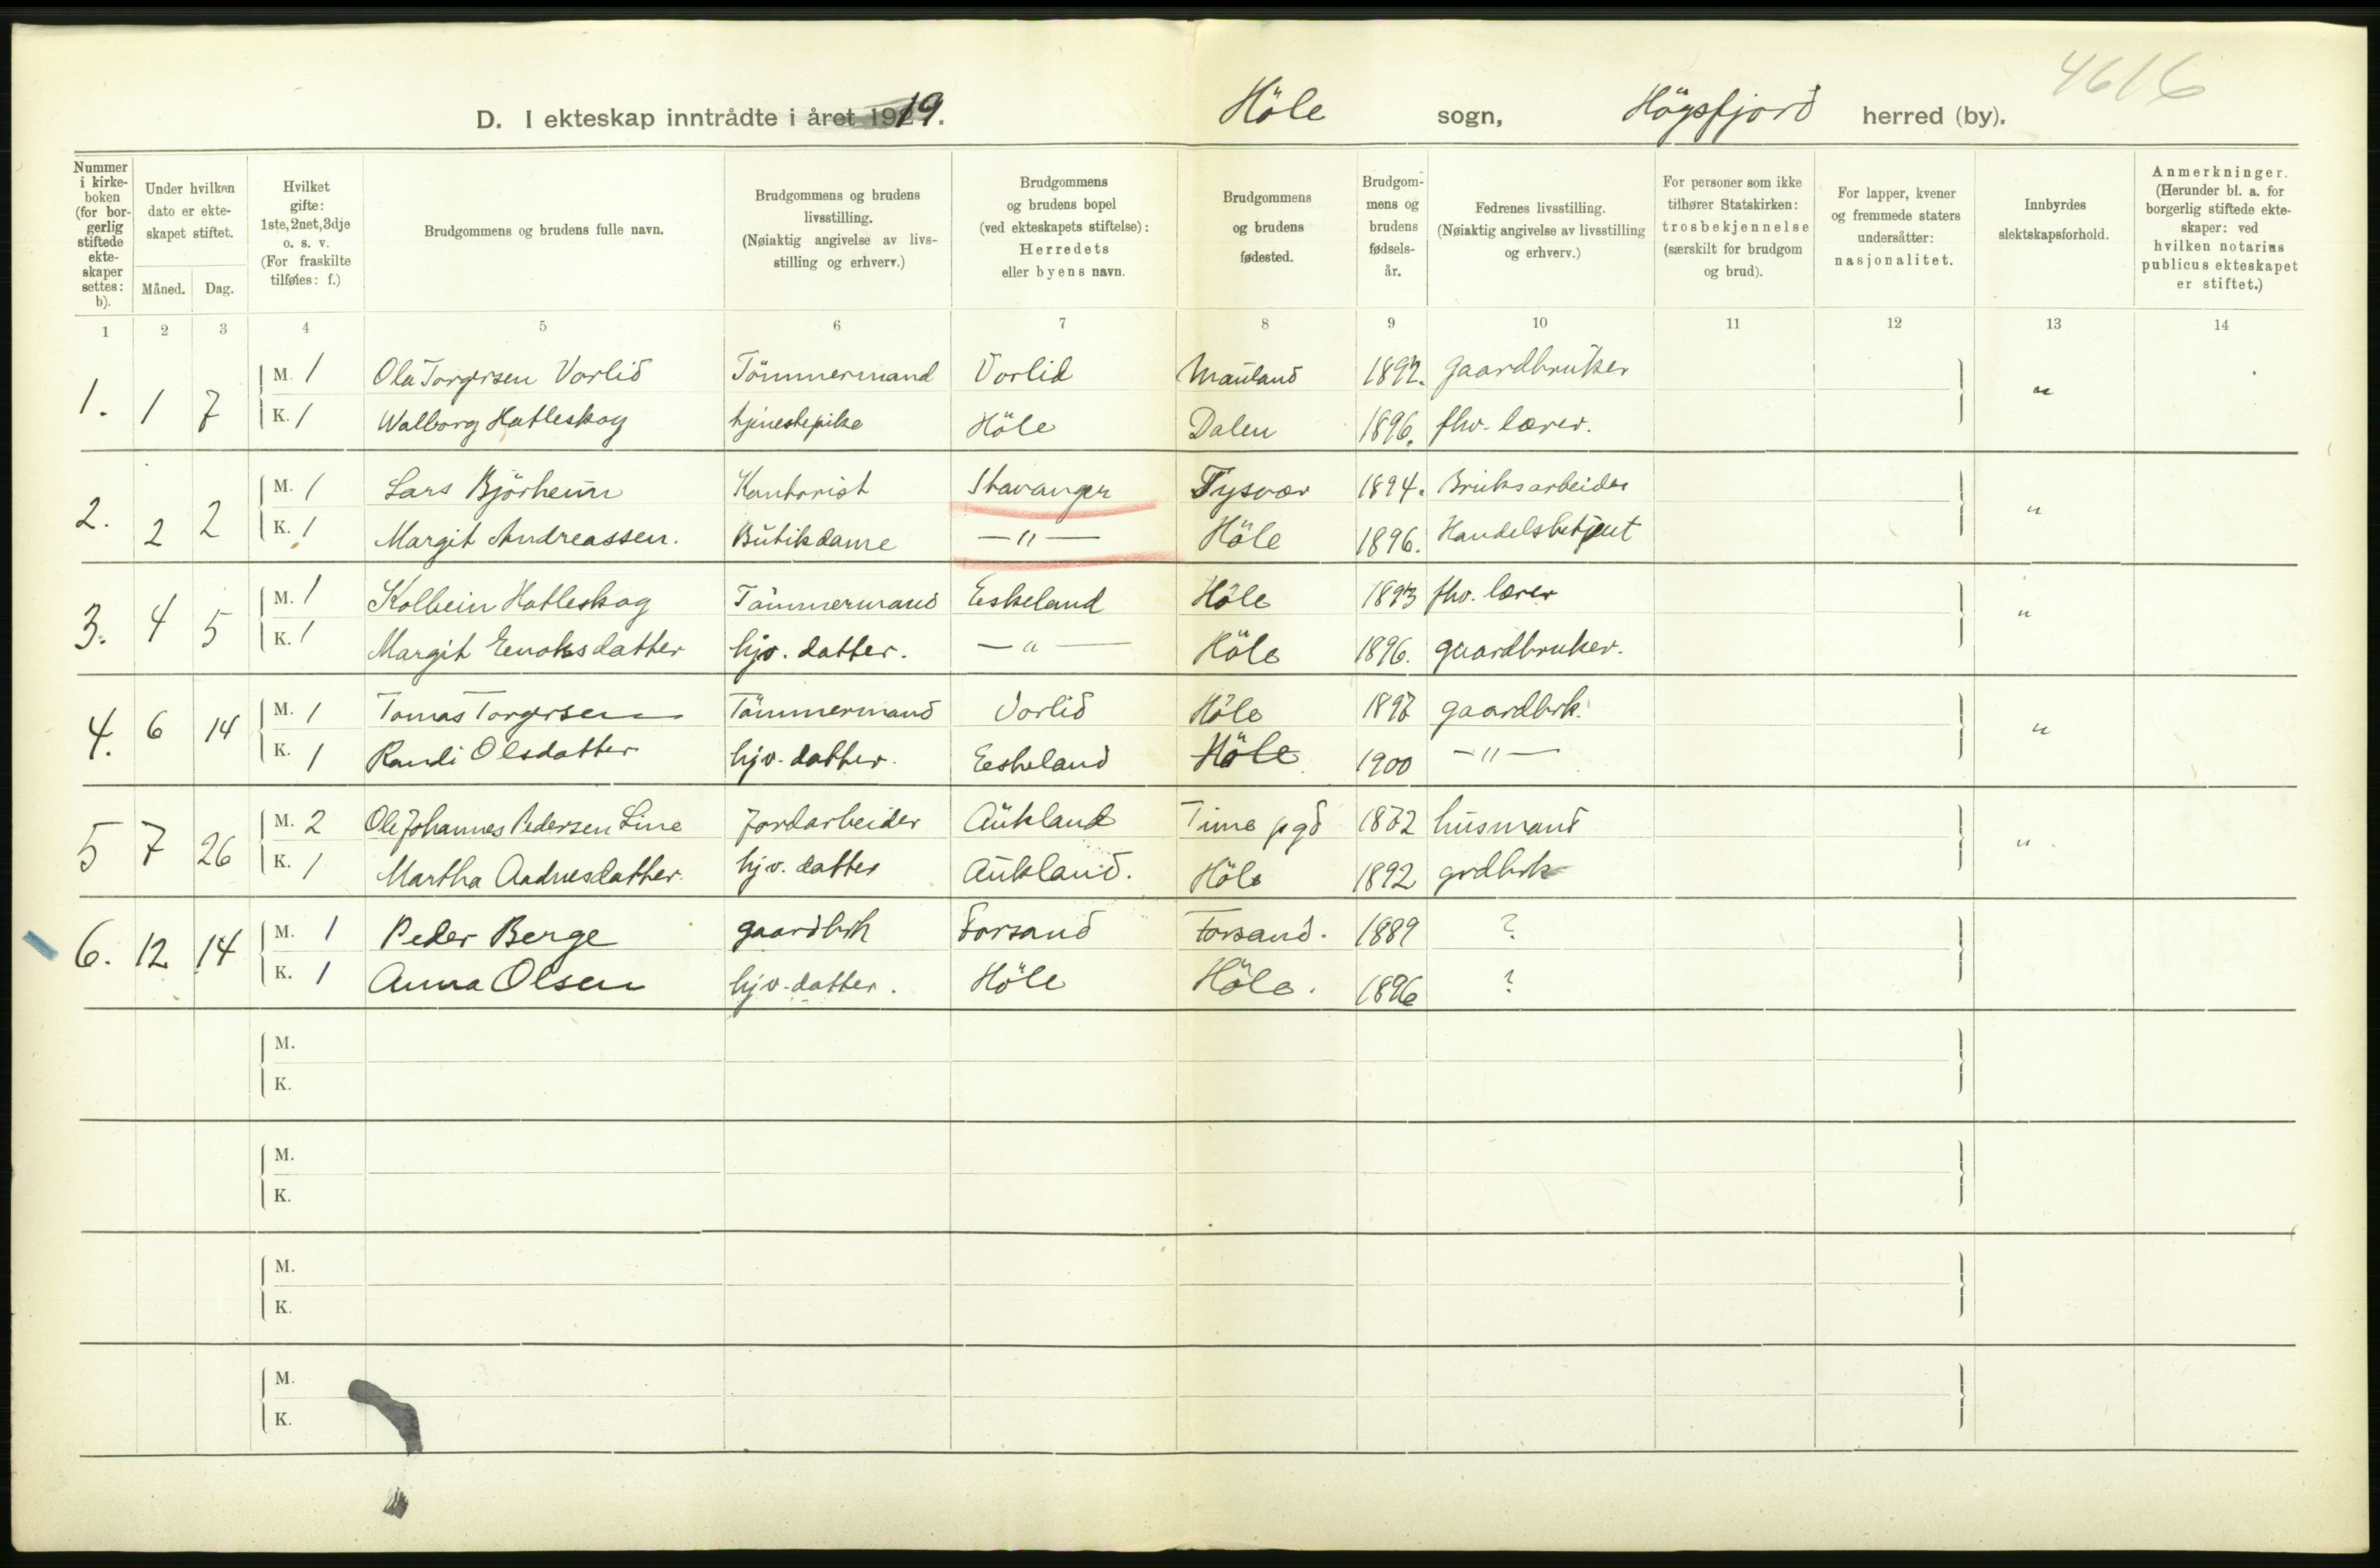 4616
D. I ekteskap inntrådte i året 1919. Höle sogn, Högsfjord herred (by).
Nummer i kirke- boken (for bor- gerlig stiftede ekte- skaper settes: b).
Under hvilken dato er ekte- skapet stiftet.
Måned. Dag.
Hvilket gifte: 1ste, 2net, 3dje o. s. v. (For fraskilte tilføies: f.)
Brudgommens og brudens fulle navn.
Brudgommens og brudens livsstilling. (Nøiaktig angivelse av livs- stilling og erhverv.)
Brudgommens og brudens bopel (ved ekteskapets stiftelse): Herredets eller byens navn.
Brudgommens og brudens fødested.
Brudgom- mens og brudens fødsels- år.
Fedrenes livsstilling. (Nøiaktig angivelse av livsstilling og erhverv.)
For personer som ikke tilhører Statskirken: trosbekjennelse (særskilt for brudgom og brud).
For lapper, kvener og fremmede staters undersåtter: nasjonalitet.
Innbyrdes slektskapsforhold.
Anmerkninger. (Herunder bl. a. for borgerlig stiftede ekte- skaper: ved hvilken notarius publicus ekteskapet er stiftet.)
1 2 3 4 5 6 7 8 9 10 11 12 13 14
1. 1 7 M. 1 Ola Torgersen Vorlid Tömmermand Vorlid Mauland 1892. gaardbruker "
K. 1 Walborg Hatleskog tjenestepike Höle Dalen 1896. fhv. lærer.
2. 2 2 M. 1 Lars Björheim Kontorist Stavanger Tysvær 1894. Bruksarbeider "
K. 1 Margit Andreassen. Butikdame — " — Höle 1896. Handelsbetjent
3. 4 5 M. 1 Kolbein Hatleskog Tömmermand Eskeland Höle 1893 fhv. lærer "
K. 1 Margit Enoksdatter hjv. datter. — " — Höle 1896. gaardbruker.
4. 6 14 M. 1 Tomas Torgersen Tömmermand Vorlid Höle 1897 gaardbrk. "
K. 1 Randi Olsdatter hjv. datter. Eskeland Höle 1900 — " —
5 7 26 M. 2 Ole Johannes Pedersen Line Jordarbeider Aukland Time pgd 1872 husmand "
K. 1 Martha Aadnesdatter. hjv. datter Aukland. Höle 1892 grdbrk
6. 12 14 M. 1 Peder Berge gaardbrk Forsand Forsand. 1889 ?
K. 1 Anna Olsen hjv. datter. Höle Höle. 1896 ?
M.
K.
M.
K.
M.
K.
M.
K.